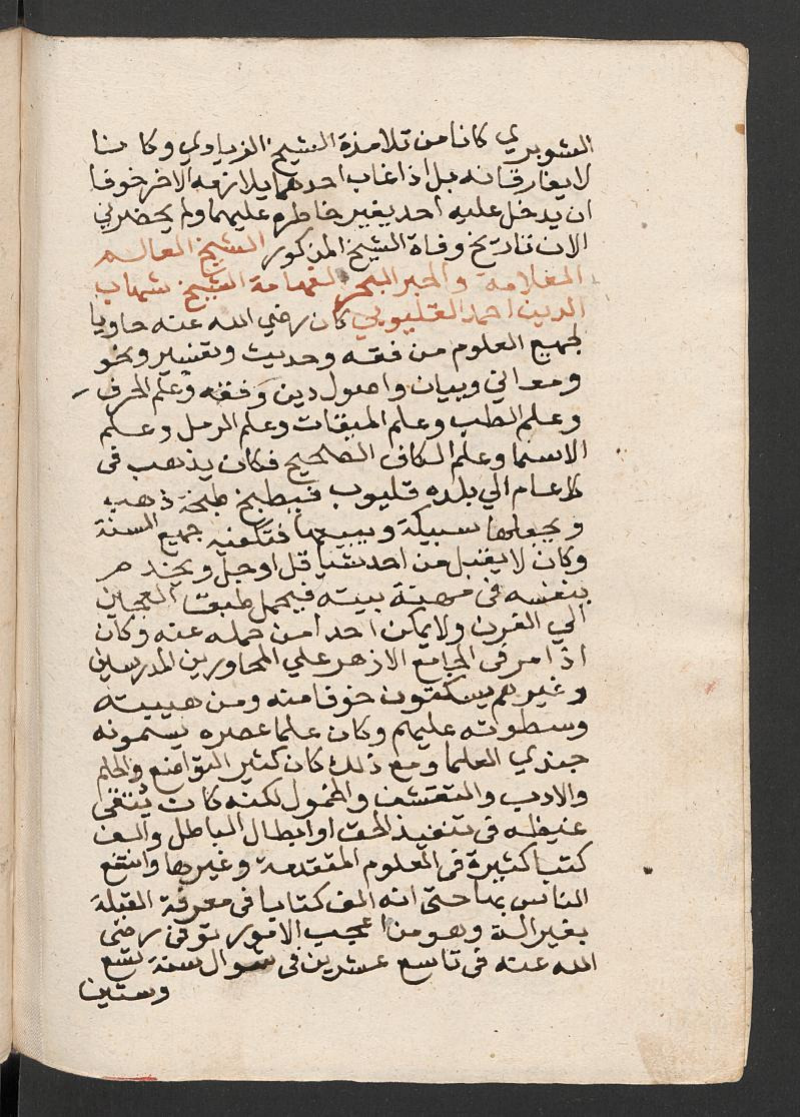 الشوبري كانا من تلامذة الشيخ الزيادي وكانا
لا يفارقانه بل اذا غاب احدهما يلازمه الاخر خوفا
ان يدخل عليه احد بغير خاطرهم عليهما ولم يحضرني
الان تاريخ وفاة الشيخ المذكور الشيخ العالم
العلامة والحبر البحر الفهامة الشيخ شهاب
الدين احمد القليوبي كان رضي الله عنه حاويا
لجميع العلوم من فقه وحديث وتفسير ونحو
ومعاني وبيان واصول دين وفقه وعلم الحرف
وعلم الطب وعلم الميقات وعلم الرمل وعلم
الاسما وعلم الكاف الصحيح فكان يذهب في
كل عام الي بلده قليوب فيطبخ طبخة ذهب
ويجعلها سبيكة ويبيعها فتكفيه جميع السنة
وكان لا يقبل من احد شيا قل او جل ويخدم
بنفسه في مهنة بيته فيحمل طبق العجين
الي الفرن ولا يمكن احدا من حمله عنه وكان
اذا مر في الجامع الازهر علي المجاورين المدرسين
وغيرهم يسكتون خوفا منه ومن هيبته
وسطوته عليهم وكان علما عصره يسمونه
جندي العلما ومع ذلك كان كثير التواضع والحلم
والادب والتقشف والخمول لكنه كان
غيظه في تنفيذ الحق او ابطال الباطل والف
كتبا كثيرة في العلوم المتقدمة وغيرها وانتفع
الناس بها حتى انه الف كتابا في معرفة القبلة
بغير الة وهو من اعجب الامور توفى رضى
الله عنه في تاسع عشرين في شوال سنة تسع
وستين